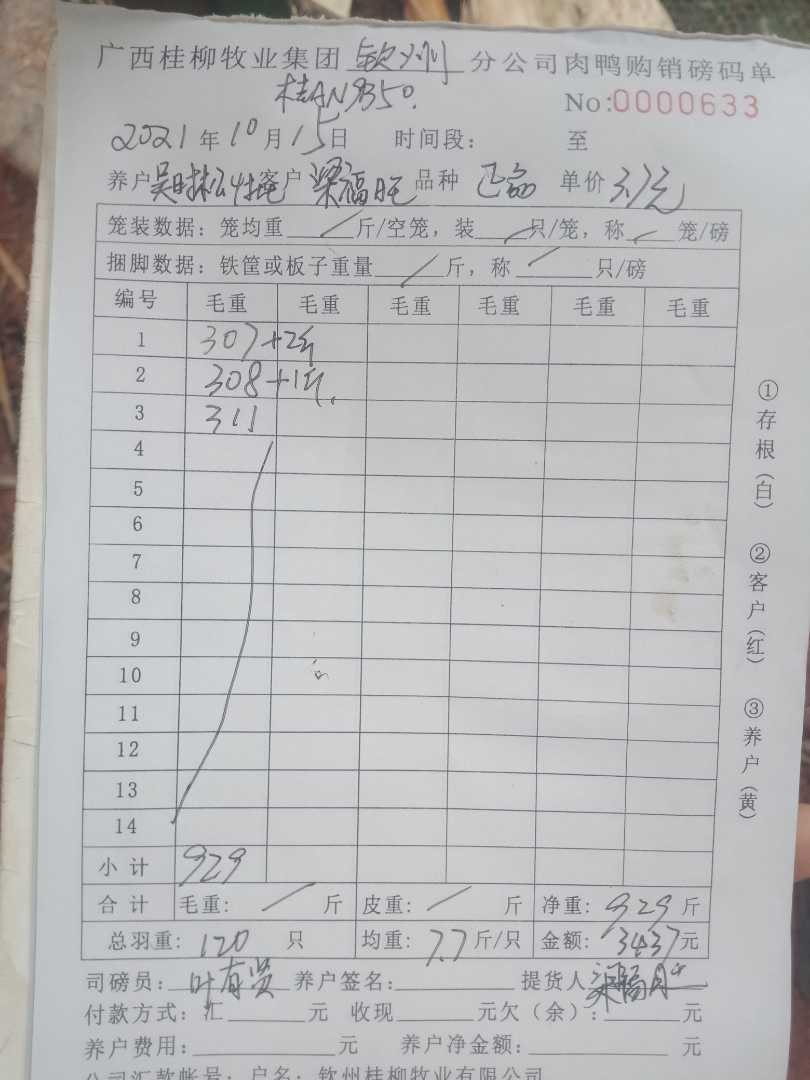 广西桂柳牧业集团 钦州 分公司肉鸭购销磅码单
桂AN9350.
No:0000633
2021年10月15日 时间段: 至
养户 客户 梁福旺 品种 正品 单价 3.7元
笼装数据: 笼均重 斤/空笼, 装 只/笼, 称 笼/磅
捆脚数据: 铁筐或板子重量 斤, 称 只/磅
编号 毛重 毛重 毛重 毛重 毛重 毛重
1 307+2斤
2 308+1斤.
3 311
4
5
6
7
8
9
10
11
12
13
14
小计 929
合计 毛重: 斤 皮重: 斤 净重: 929斤
总羽重: 120 只 均重: 7.7斤/只 金额: 3437元
司磅员: 叶有贤 养户签名: 提货人 梁福旺
付款方式: 汇 元 收现 元欠(余): 元
养户费用: 元 养户净金额: 元
公司汇款帐号: 户名: 钦州桂柳牧业有限公司
①存根(白) ②客户(红) ③养户(黄)